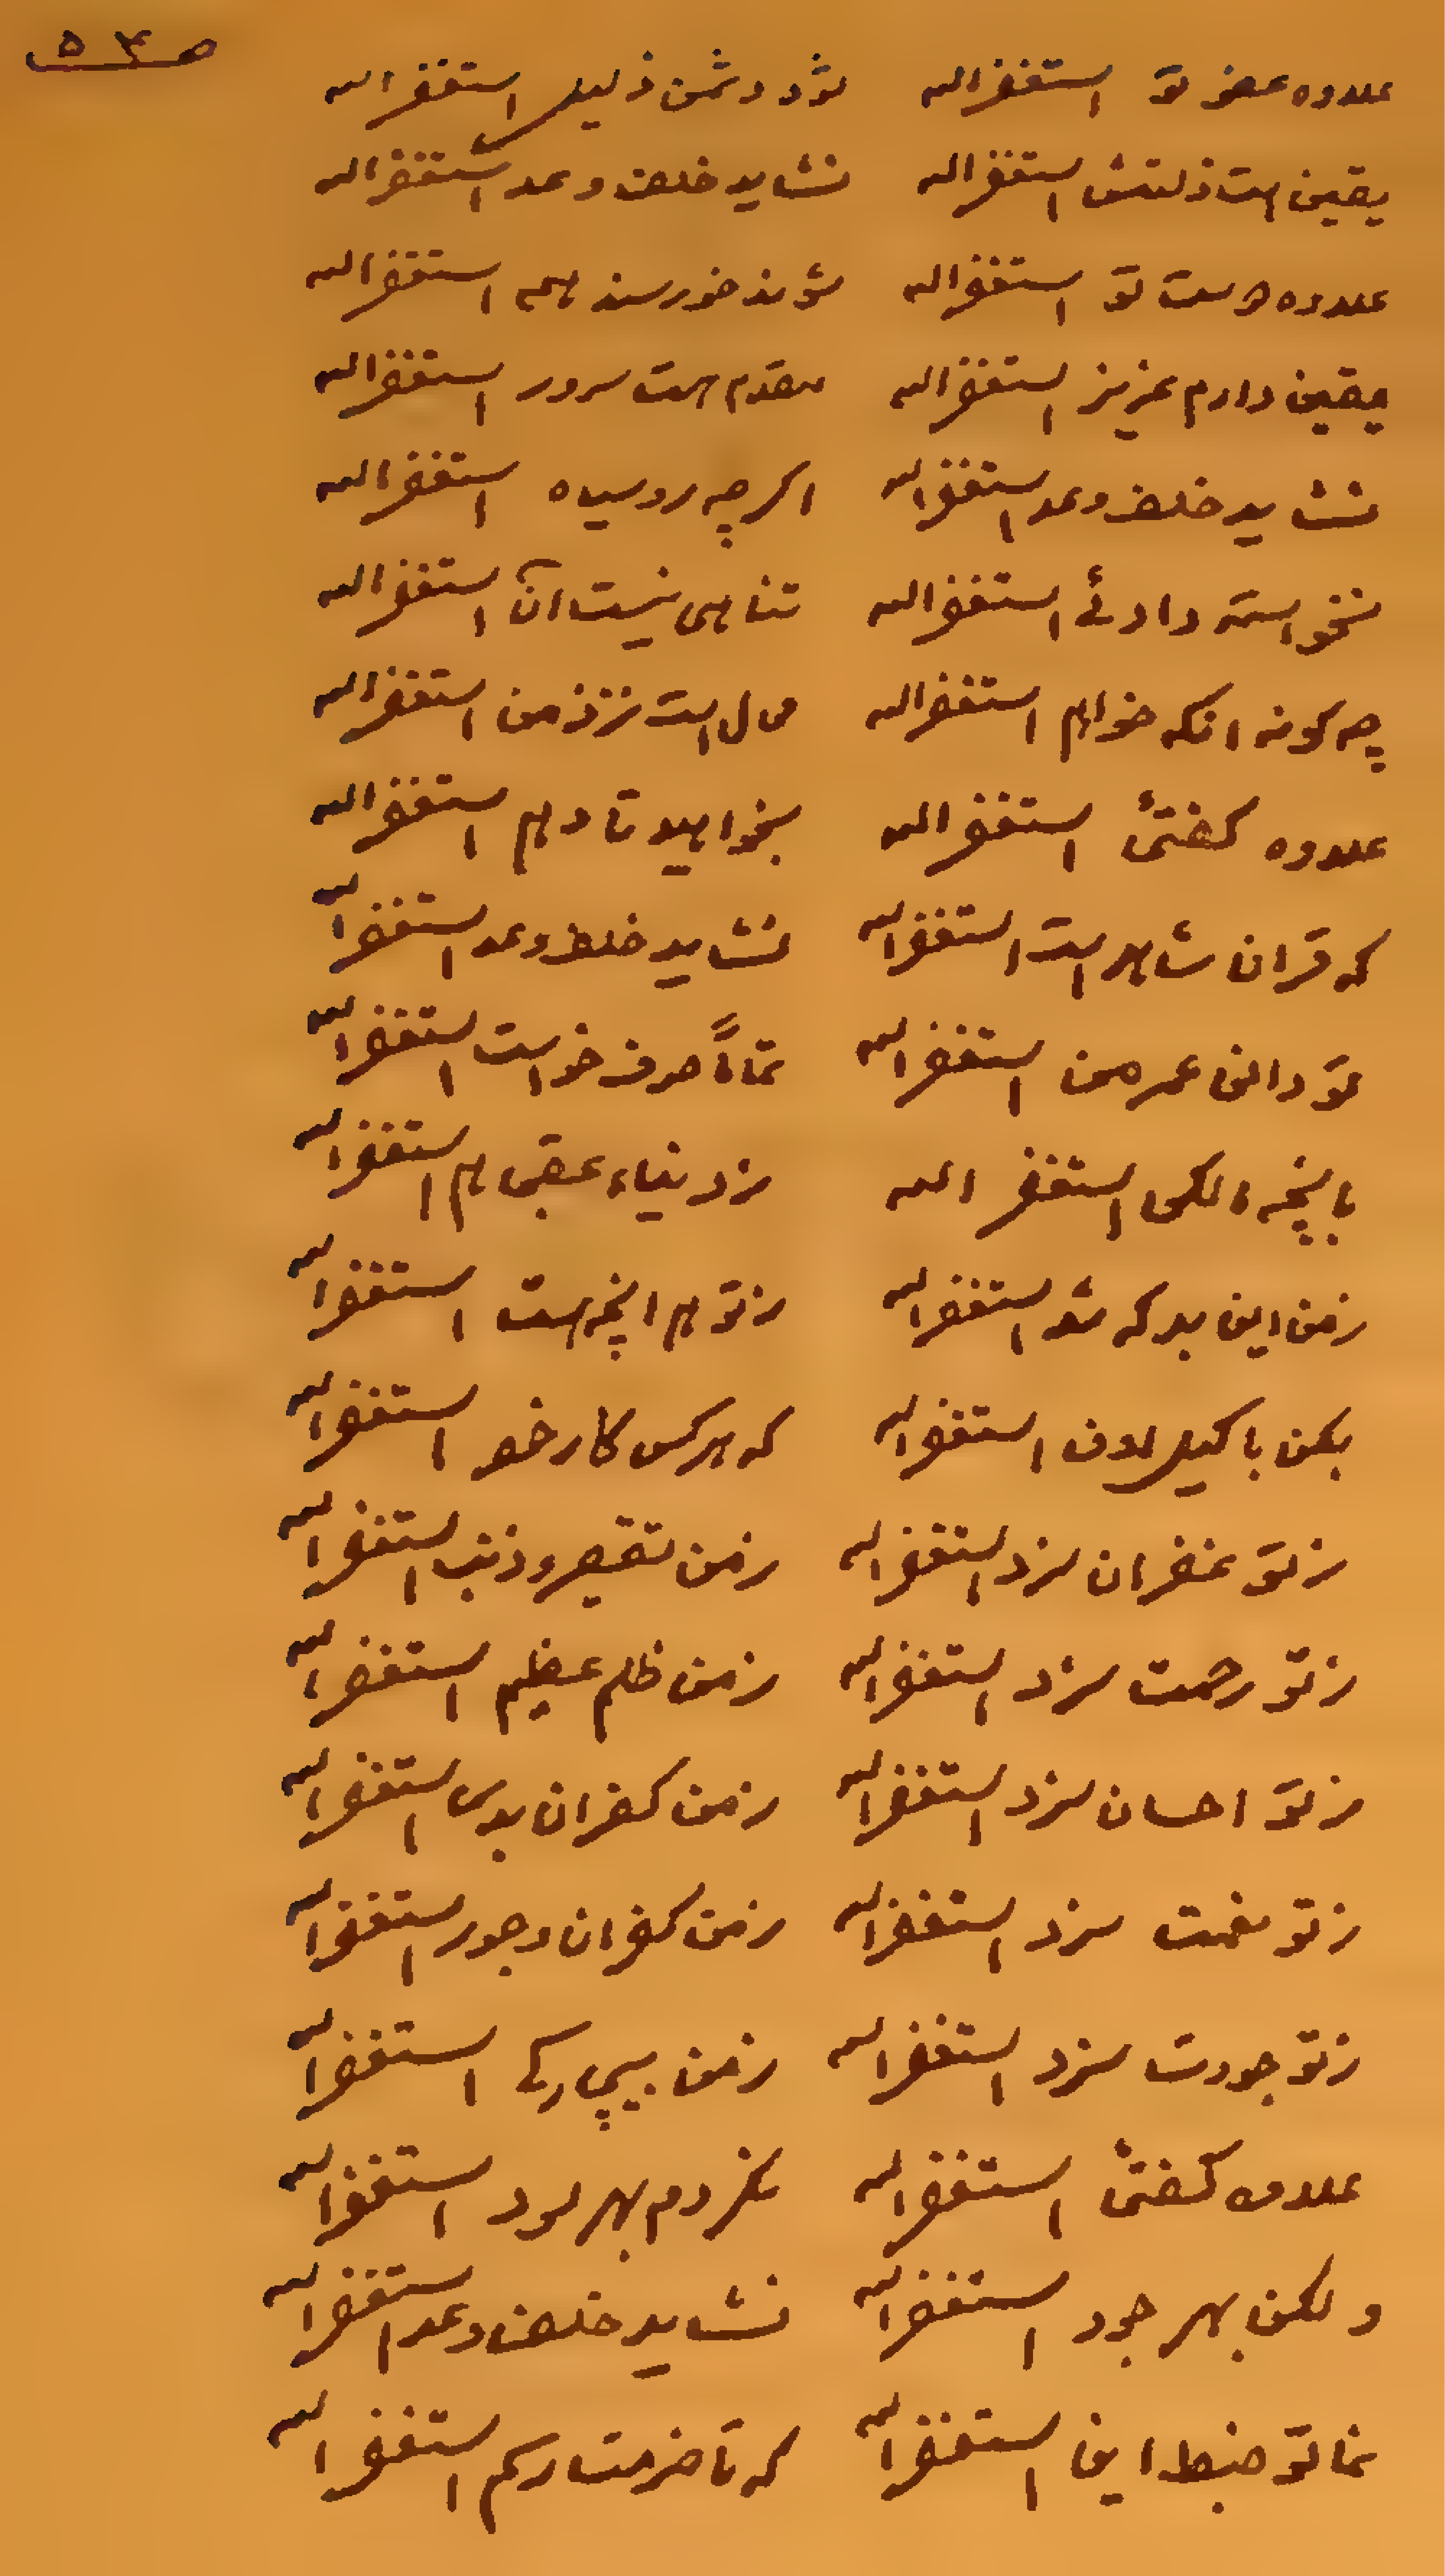 ص ۵۴
علاوه عفو تو استغفرالله شود دشمن ذلیل استغفرالله
یقین است ذلتش استغفرالله نشاید خلف وعد استغفرالله
علاوه دوست تو استغفرالله شوند خورسند همه استغفرالله
یقین دارم عزیز استغفرالله مقدم هست سرور استغفرالله
نشاید خلف وعد استغفرالله اکرچه روسیاه استغفرالله
نخواسته دادئے استغفرالله تناهی نیست آن استغفرالله
چه کونه انکه خواهم استغفرالله محال است نزد من استغفرالله
علاوه کفتئ استغفرالله بخواهید تا دهم استغفرالله
که قران شاهد است استغفرالله نشاید خلف وعد استغفرالله
تو دانی عمر من استغفرالله تماماً صرف خواست استغفرالله
باپنجه الکی استغفرالله زدنیاء عقبی هم استغفرالله
زمن این بد که شد استغفرالله زتو هم انچه هست استغفرالله
بکن با کیل اوف استغفرالله که هرکس کار خود استغفرالله
زتو غفران سزد استغفرالله زمن تقصیر و ذنب استغفرالله
زتو رحمت سزد استغفرالله زمن ظلم عظیم استغفرالله
زتو احسان سزد استغفرالله زمن کفران بدی استغفرالله
زتو نعمت سزد استغفرالله زمن کفران وجور استغفرالله
زتو جودت سزد استغفرالله زمن بیچارکے استغفرالله
علاوه کفتئ استغفرالله نکردم بهر سود استغفرالله
ولکن بهر جود استغفرالله نشاید خلف وعد استغفرالله
نما تو ضبط این استغفرالله که تا خدمت رسم استغفرالله